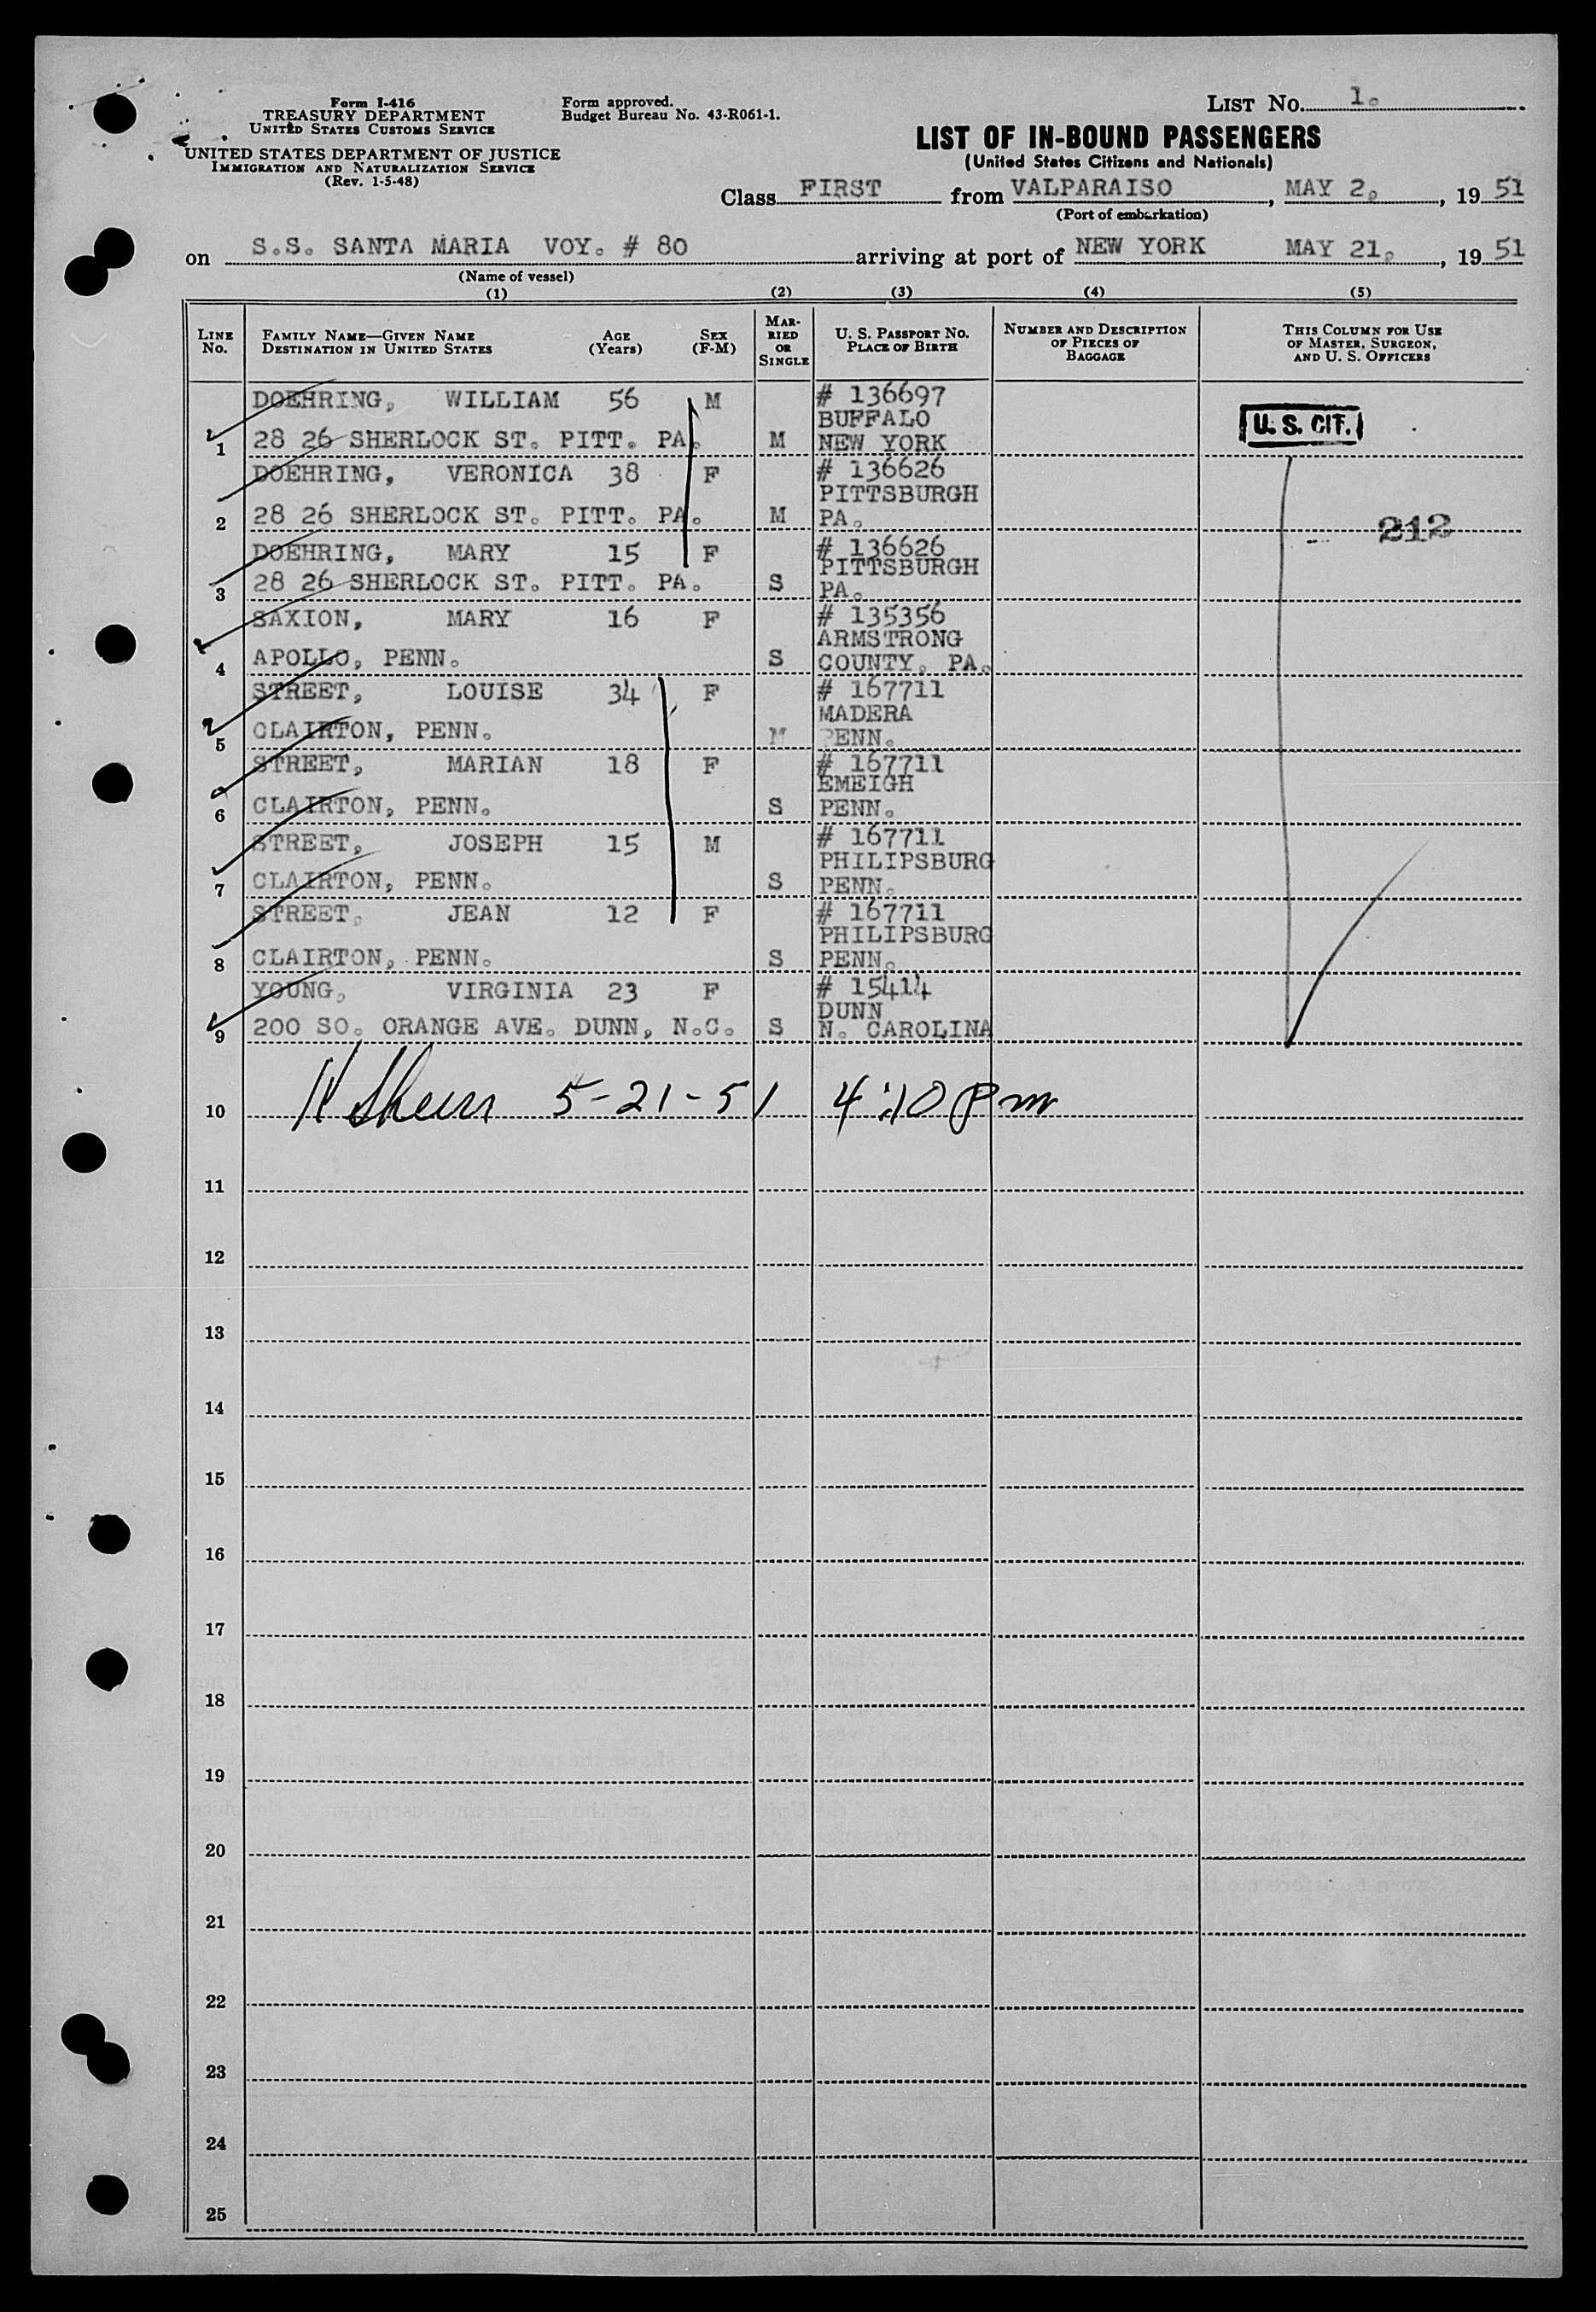 Form I-416
TREASURY DEPARTMENT
UNITED STATES CUSTOMS SERVICE
UNITED STATES DEPARTMENT OF JUSTICE
IMMIGRATION AND NATURALIZATION SERVICE
(Rev. 1-5-48)
Form approved.
Budget Bureau No. 43-R061-1.
LIST NO. 1.
LIST OF IN-BOUND PASSENGERS
(United States Citizens and Nationals)
Class FIRST from VALPARAISO, MAY 2, 19 51
(Port of embarkation)
on S.S. SANTA MARIA VOY. # 80 arriving at port of NEW YORK MAY 21, 19 51
(Name of vessel)
(1) (2) (3) (4) (5)
LINE NO.
FAMILY NAME—GIVEN NAME
DESTINATION IN UNITED STATES
AGE (Years)
SEX (F-M)
MARRIED OR SINGLE
U. S. PASSPORT NO.
PLACE OF BIRTH
NUMBER AND DESCRIPTION OF PIECES OF BAGGAGE
THIS COLUMN FOR USE OF MASTER, SURGEON, AND U. S. OFFICERS
DOEHRING, WILLIAM 56 M # 136697
BUFFALO
1 28 26 SHERLOCK ST. PITT. PA. M NEW YORK
U. S. CIT.
DOEHRING, VERONICA 38 F # 136626
PITTSBURGH
2 28 26 SHERLOCK ST. PITT. PA. M PA.
212
DOEHRING, MARY 15 F # 136626
PITTSBURGH
3 28 26 SHERLOCK ST. PITT. PA. S PA.
SAXION, MARY 16 F # 135356
ARMSTRONG
4 APOLLO, PENN. S COUNTY, PA.
STREET, LOUISE 34 F # 167711
MADERA
5 CLAIRTON, PENN. M PENN.
STREET, MARIAN 18 F # 167711
EMEIGH
6 CLAIRTON, PENN. S PENN.
STREET, JOSEPH 15 M # 167711
PHILIPSBURG
7 CLAIRTON, PENN. S PENN.
STREET, JEAN 12 F # 167711
PHILIPSBURG
8 CLAIRTON, PENN. S PENN.
YOUNG, VIRGINIA 23 F # 15414
DUNN
9 200 SO. ORANGE AVE. DUNN, N.C. S N. CAROLINA
10 5-21-51 4:10 Pm
11
12
13
14
15
16
17
18
19
20
21
22
23
24
25